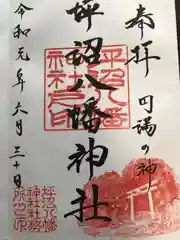 奉拝
円満の神
坪沼八幡神社
坪沼八幡神社之印
令和元年六月三十日
坪沼八幡
神社社務
所之印